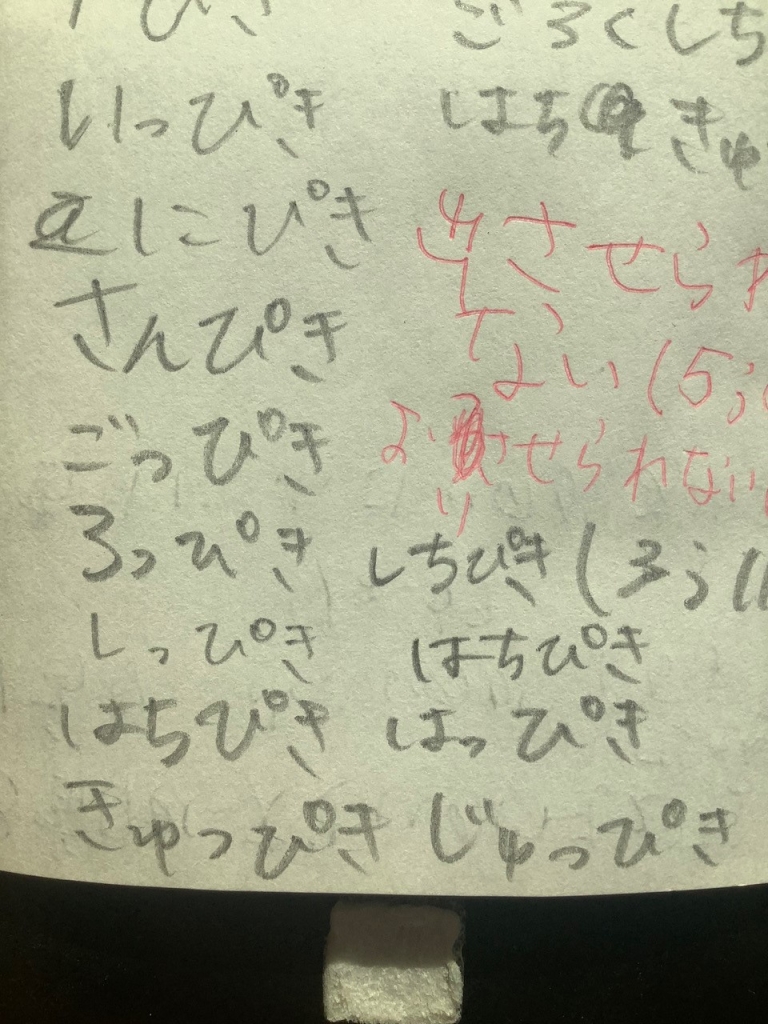 ぴき ごろくしち
いっぴき はち きゅ
にぴき
させられ
さんぴき
ない (5;
ごっぴき
させられない
ろっぴき しちぴき (3;11
しっぴき はちぴき
はちぴき はっぴき
きゅっぴき じゅっぴき